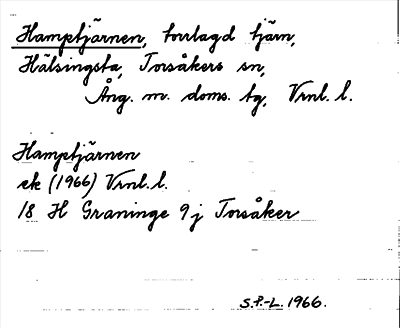 Hamptjärnen, torrlagd tjärn,
Hälsingsta, Torsåkers sn,
Ång. m. doms. tg, Vrnl. l.
Hamptjärnen
ek (1966) Vrnl. l.
18 H Graninge 9j Torsåker
S.P.-L. 1966.